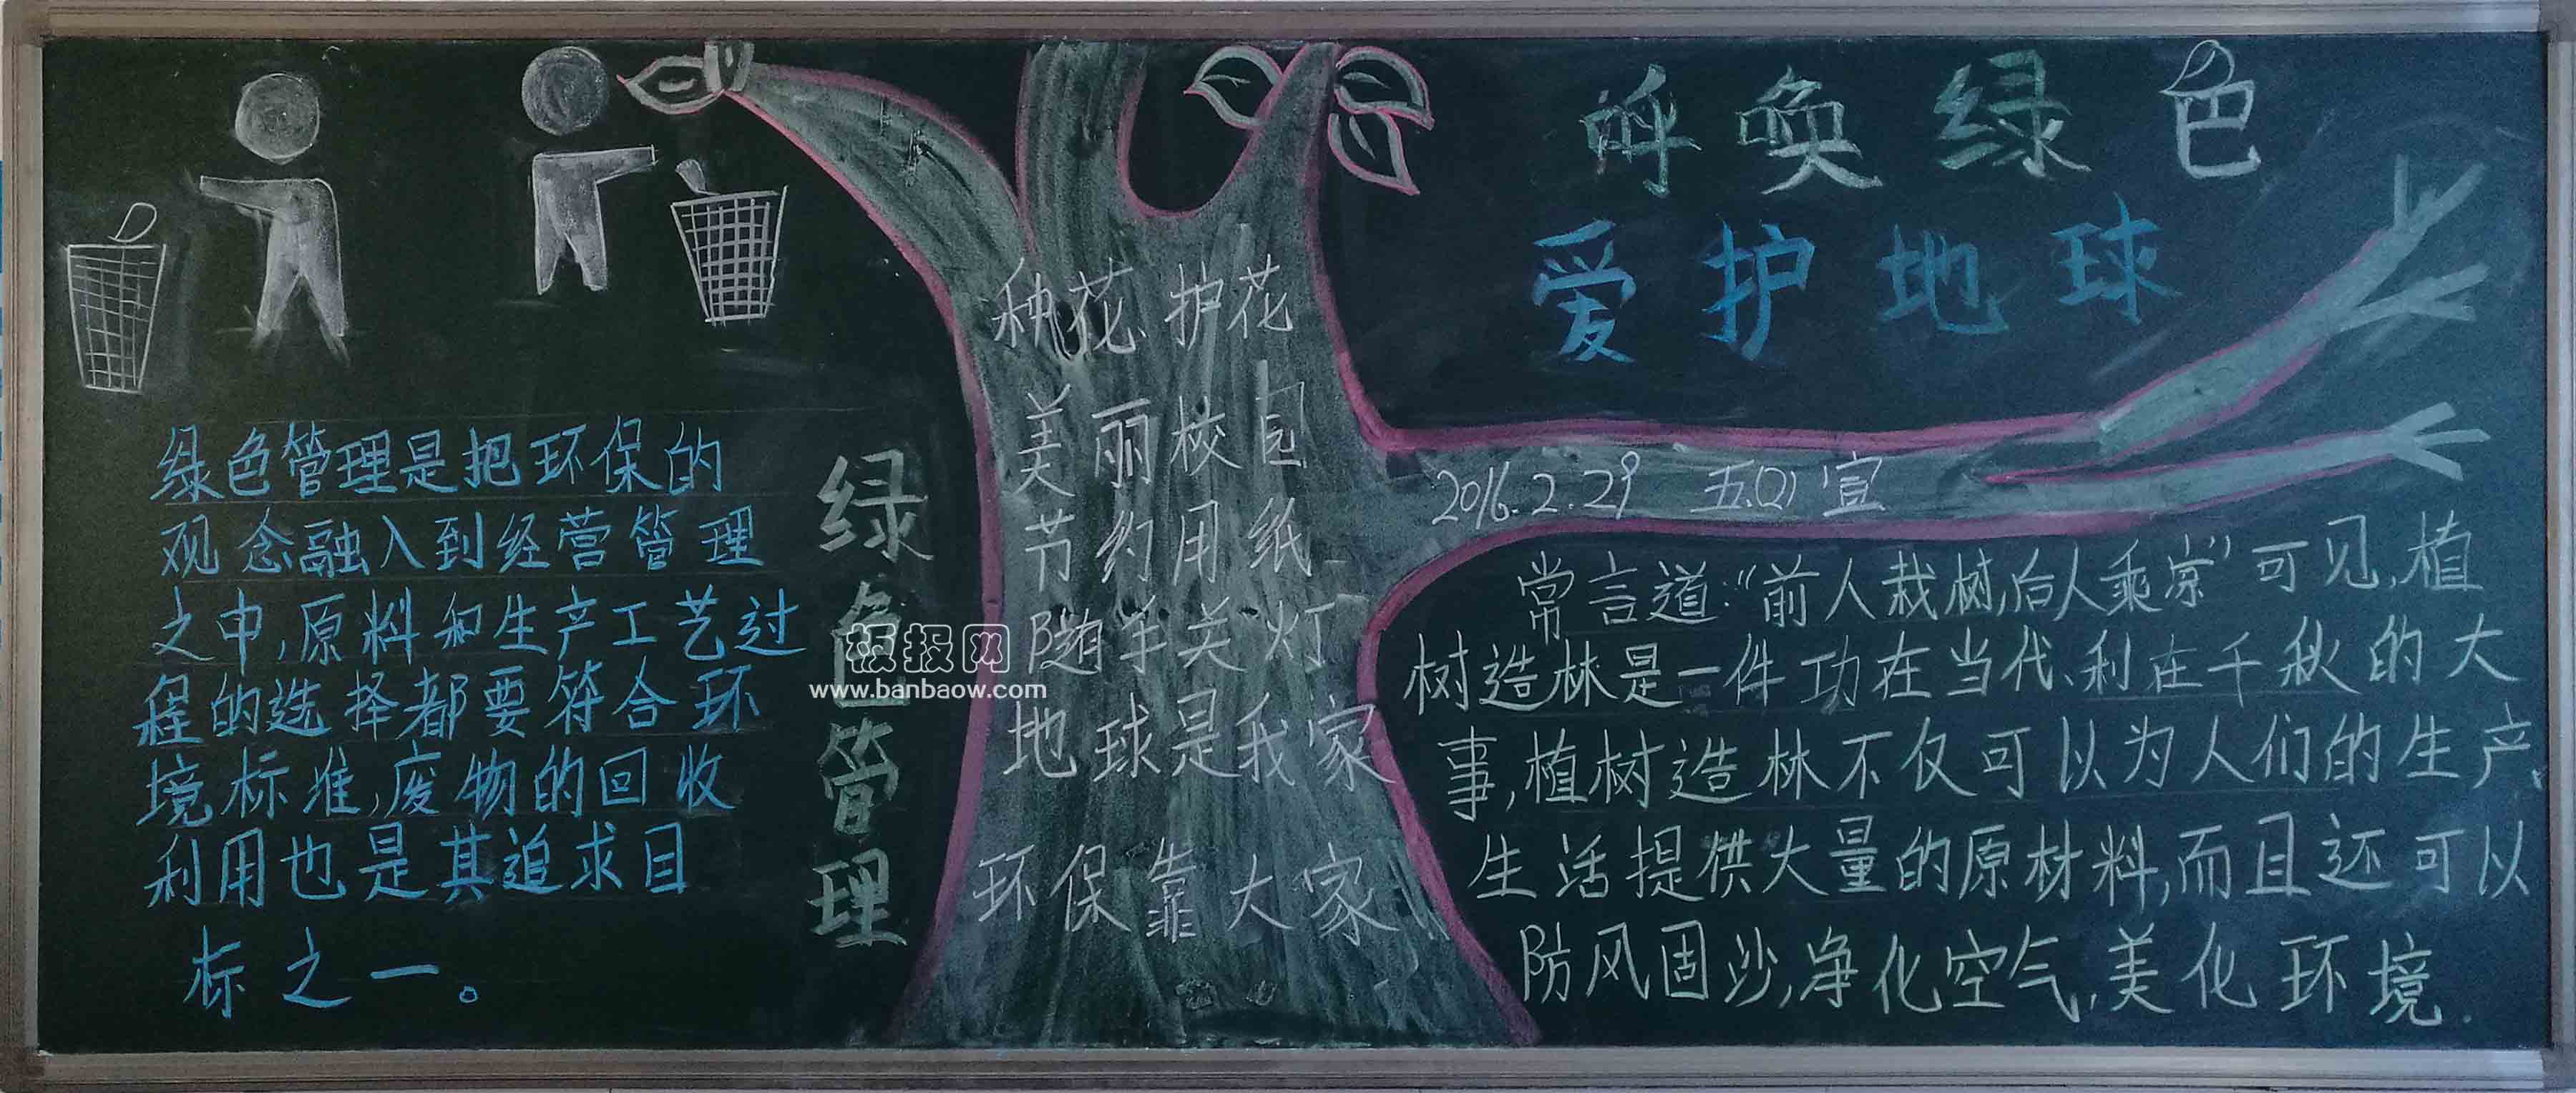 呼唤绿色
爱护地球
绿色管理是把环保的
观念融入到经营管理
之中,原料和生产工艺过
程的选择都要符合环
境标准,废物的回收
利用也是其追求目
标之一。
绿色管理
种花、护花
美丽校园
节约用纸
随手关灯
地球是我家
环保靠大家
2016.2.29 五四宣
常言道:“前人栽树,后人乘凉”可见,植
树造林是一件功在当代、利在千秋的大
事,植树造林不仅可以为人们的生产、
生活提供大量的原材料,而且还可以
防风固沙,净化空气,美化环境.
板报网
www.banbaow.com